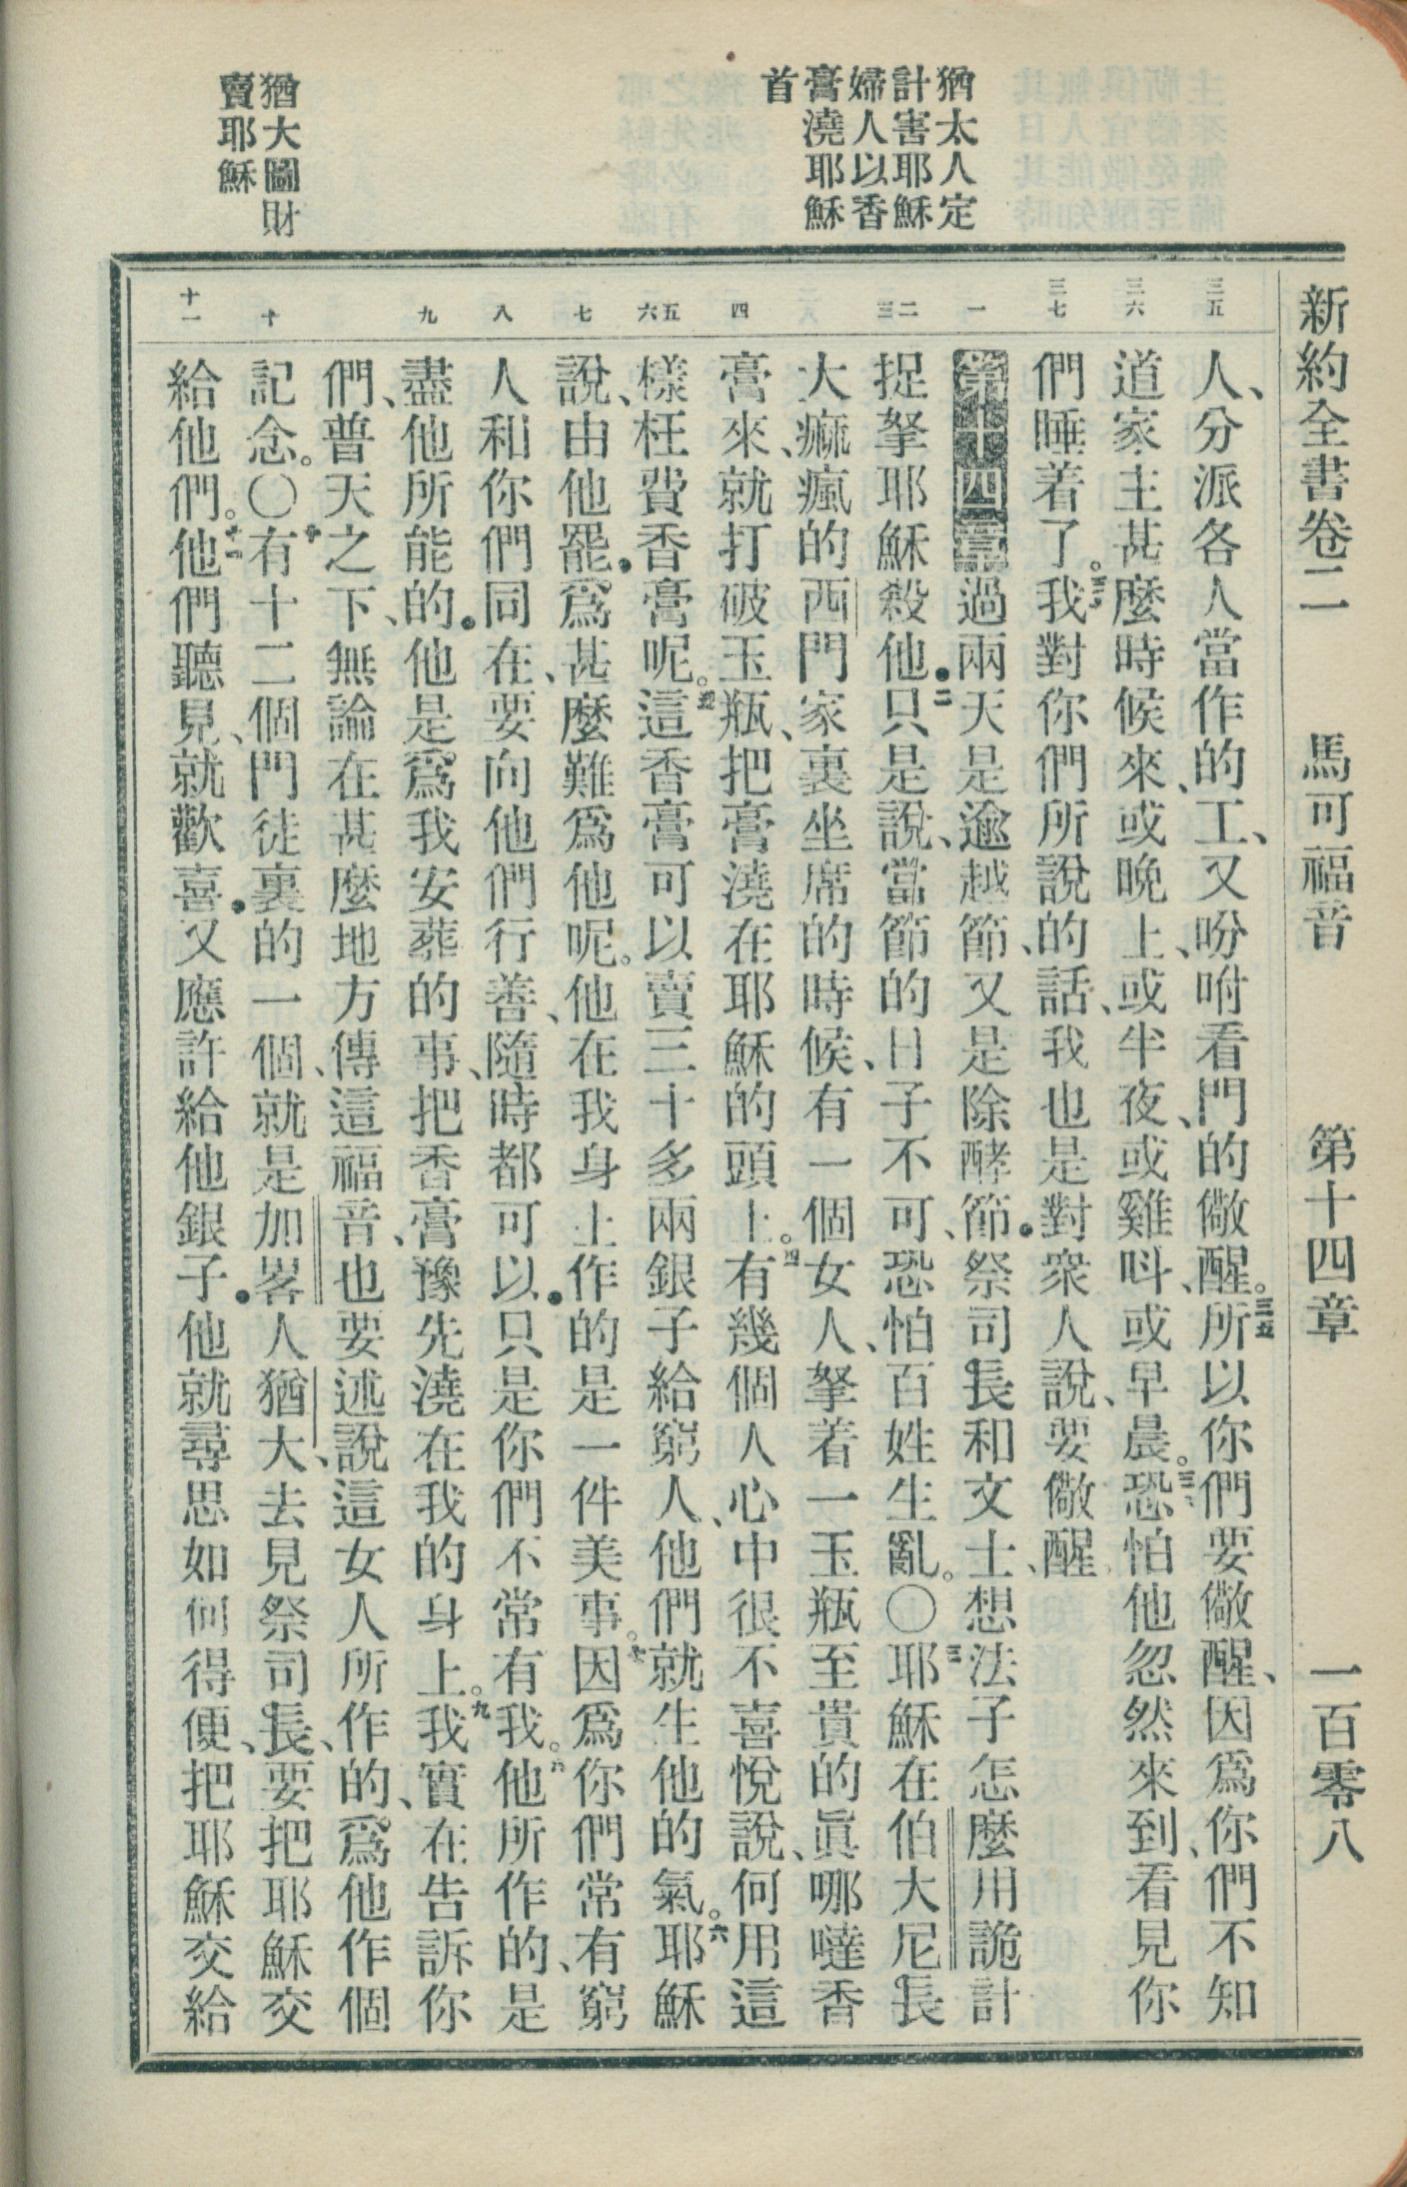 新約全書卷二　馬可福音　第十四章　一百零八
猶太人定
計害耶穌
婦人以香
膏澆耶穌
首
猶大圖財
賣耶穌
三五
三六
三七
一
二
三
四
五
六
七
八
九
十
十一
人、分派各人當作的工、又吩咐看門的儆醒。三五所以你們要儆醒、因爲你們不知
道家主甚麼時候來、或晚上、或半夜、或雞叫、或早晨。三六恐怕他忽然來到、看見你
們睡着了。三七我對你們所說的話、我也是對衆人說、要儆醒、
第十四章過兩天是逾越節、又是除酵節．祭司長和文士想法子怎麼用詭計
捉拏耶穌殺他．二只是說、當節的日子不可、恐怕百姓生亂。〇三耶穌在伯大尼長
大痲瘋的西門家裏坐席的時候、有一個女人、拏着一玉瓶至貴的眞哪噠香
膏來、就打破玉瓶、把膏澆在耶穌的頭上。四有幾個人心中很不喜悅說、何用這
樣枉費香膏呢。五這香膏可以賣三十多兩銀子給窮人、他們就生他的氣。六耶穌
說、由他罷．爲甚麼難爲他呢。他在我身上作的是一件美事。七因爲你們常有窮
人和你們同在、要向他們行善、隨時都可以．只是你們不常有我。八他所作的、是
盡他所能的．他是爲我安葬的事、把香膏豫先澆在我的身上。九我實在告訴你
們、普天之下、無論在甚麼地方傳這福音、也要述說這女人所作的、爲他作個
記念。〇十有十二個門徒裏的一個、就是加畧人猶大、去見祭司長、要把耶穌交
給他們。十一他們聽見、就歡喜．又應許給他銀子．他就尋思如何得便、把耶穌交給